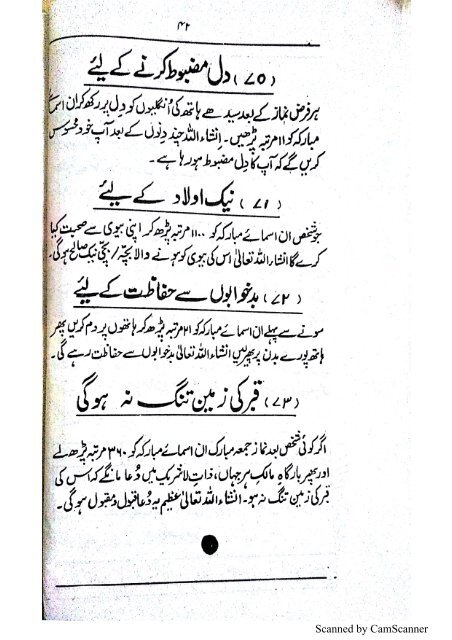 ۴۲
(۷۵) دل مضبوط کرنے کے لیئے
ہر فرض نماز کے بعد سیدھے ہاتھ کی اُنگلیوں کو دِل پر رکھ کر ان اسمائے
مبارکہ کو ۱۱ مرتبہ پڑھیں۔ انشاء اللہ چند دنوں کے بعد آپ خود محسوس
کریں گے کہ آپ کا دِل مضبوط ہو رہا ہے۔
(۷۱) نیک اولاد کے لیئے
جو شخص ان اسمائے مبارکہ کو ۱۱۰۰ مرتبہ پڑھ کر اپنی بیوی سے صحبت کیا
کرے گا انشاء اللہ تعالیٰ اس کی بیوی کو ہونے والا بچہ / بچی نیک صالح ہوگی۔
(۷۲) بدخوابوں سے حفاظت کے لیئے
سونے سے پہلے ان اسمائے مبارکہ کو ۲۱ مرتبہ پڑھ کر ہاتھوں پر دم کریں پھر
ہاتھ پورے بدن پر پھیر لیں انشاء اللہ تعالیٰ بدخوابوں سے حفاظت رہے گی۔
(۷۳) قبر کی زمین تنگ نہ ہوگی
اگر کوئی شخص بعد نماز جمعہ مبارک ان اسمائے مبارکہ کو ۳۶۰ مرتبہ پڑھ لے
اور پھر بارگاہِ مالک ہر جہاں، ذات لاشریک میں دُعا مانگے کہ اس کی
قبر کی زمین تنگ نہ ہو۔ انشاء اللہ تعالیٰ عظیم یہ دُعا قبول و مقبول ہوگی۔
Scanned by CamScanner